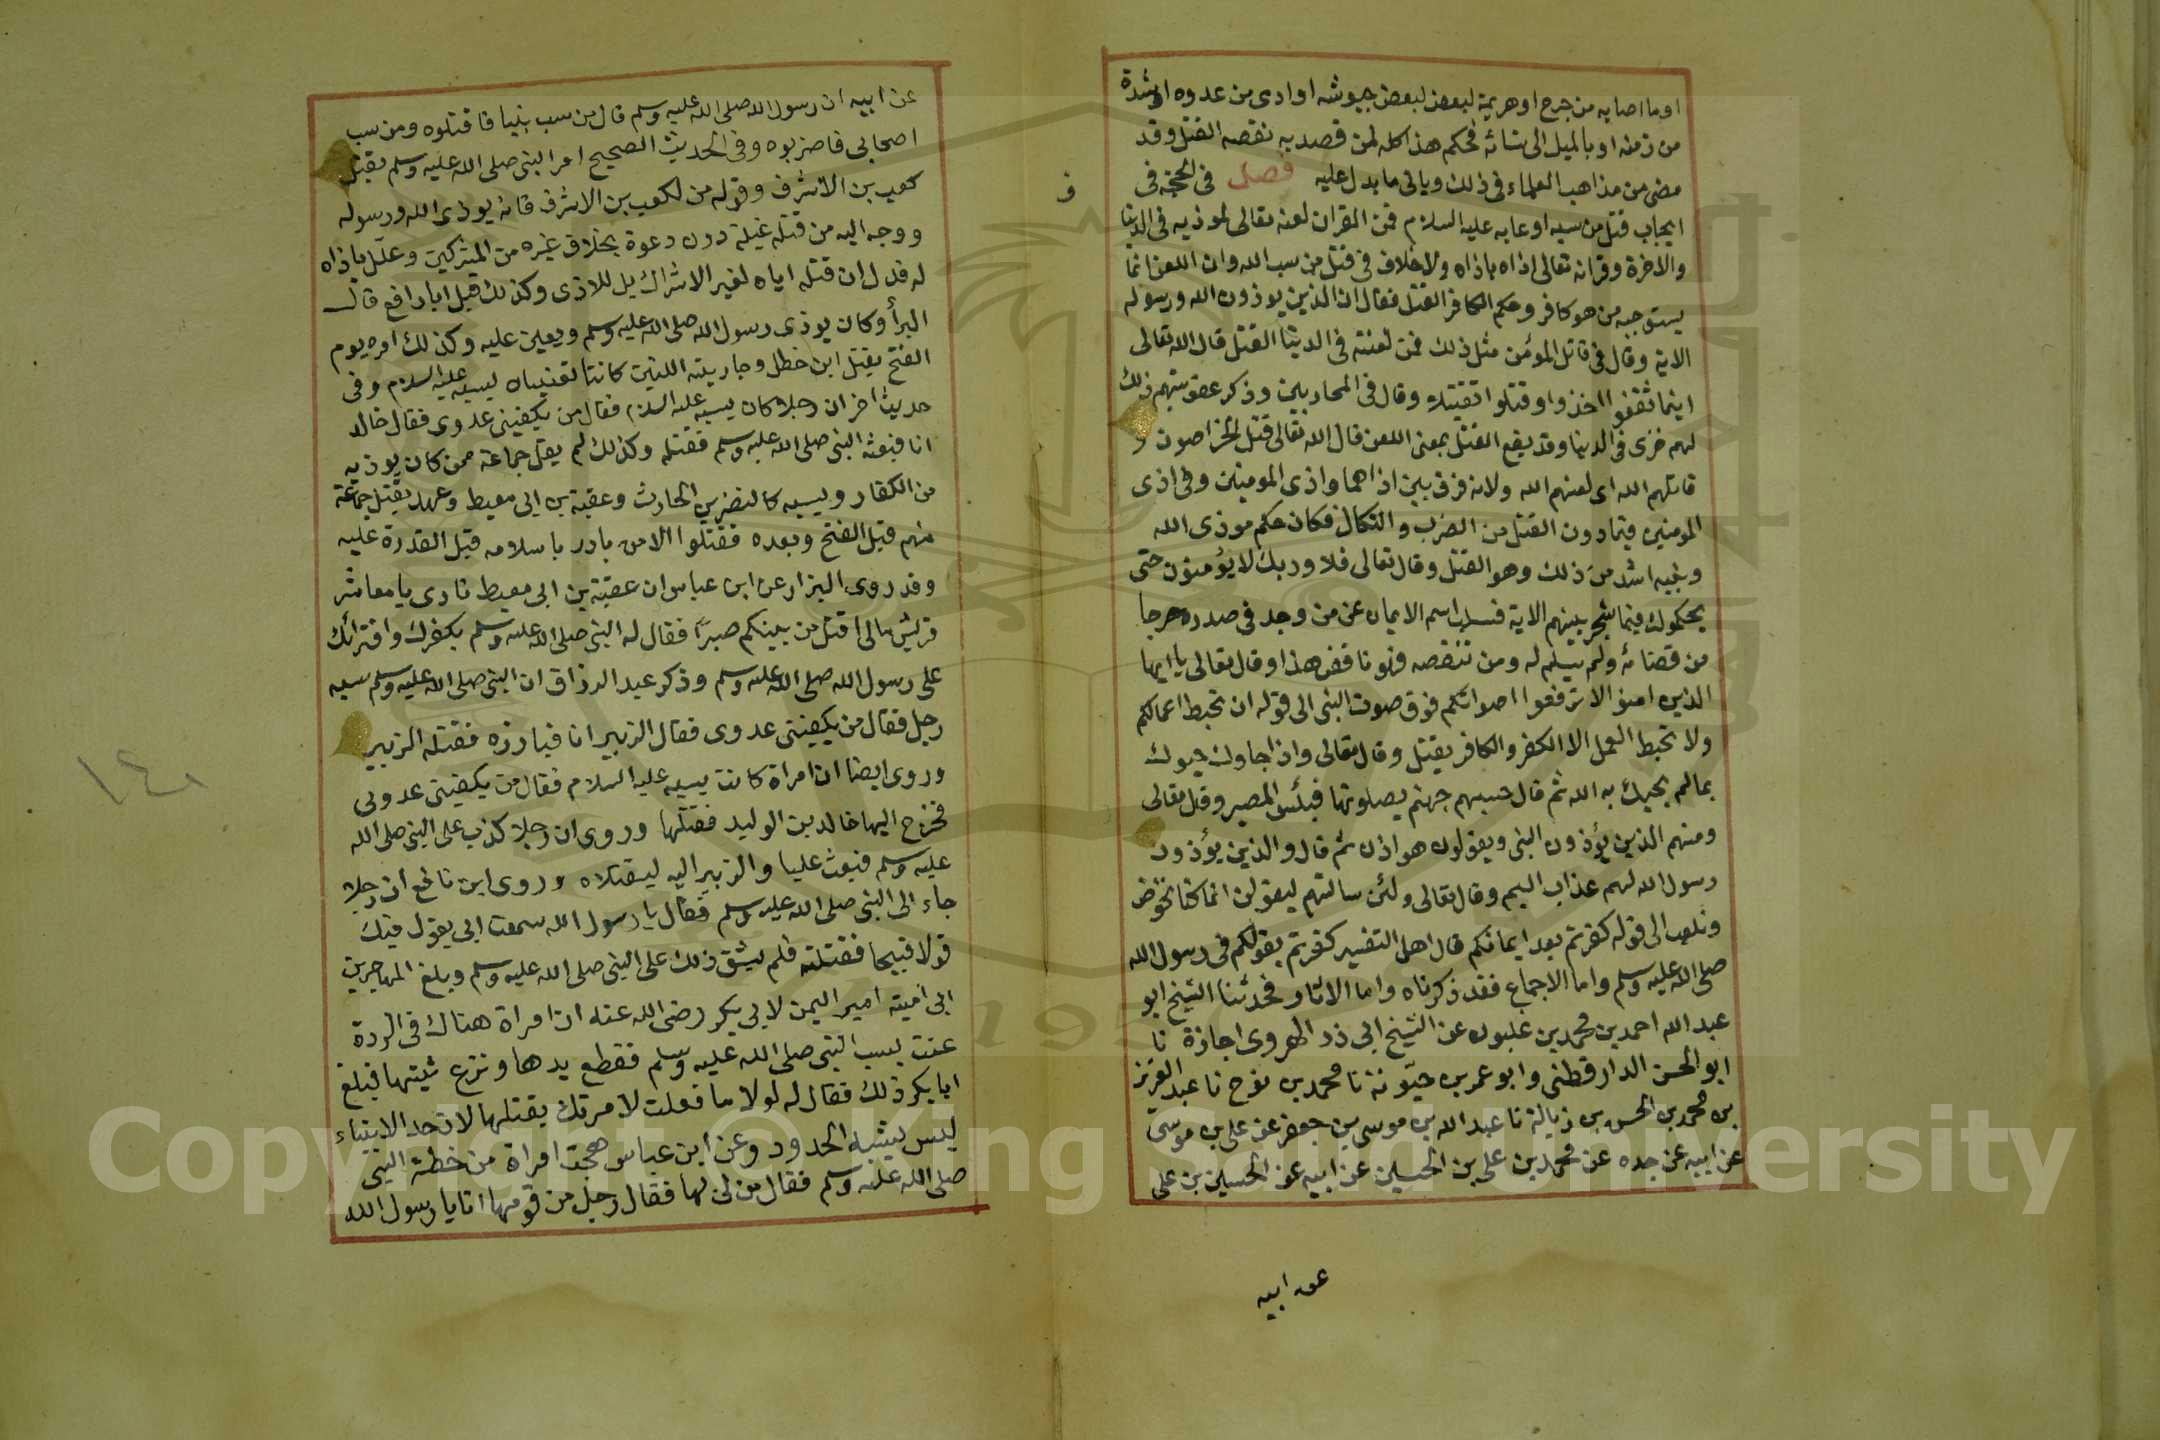 او ما اصابه من جرح او هزيمة لبعض جيوشه او اذى من عدوه او شدة
من زمنه او بالميل الى نسائه فحكم هذا كله لمن قصد به نقصه القتل وقد
مضى من مذاهب العلماء فى ذلك وياتى ما يدل عليه فصل فى الحجة فى
ايجاب قتل من سبه او عابه عليه السلام فمن القران لعنه تعالى لموذيه فى الدنيا
والاخرة وقرانه تعالى اذاه باذاه ولا خلاف فى قتل من سب الله وان اللعن انما
يستوجبه من هو كافر وحكم الكافر القتل فقال ان الذين يوذون الله ورسوله
الاية وقال فى قاتل المؤمن مثل ذلك فمن لعنته فى الدنيا القتل قال الله تعالى
اينما ثقفوا اخذوا وقتلوا تقتيلا وقال فى المحاربين وذكر عقوبتهم ذلك
لهم خزى فى الدنيا وقد يقع القتل بمعنى اللعن قال الله تعالى قتل الخراصون و
قاتلهم الله اى لعنهم الله ولانه فرق بين اذاهما واذى المومنين وفى اذى
المومنين فيما دون القتل من الضرب والنكال فكان حكم موذى الله
ونبيه اشد من ذلك وهو القتل وقال تعالى فلا وربك لا يؤمنون حتى
يحكموك فيما شجر بينهم الاية فسلب اسم الايمان عن من وجد فى صدره حرجا
من قضائه ولم يسلم له ومن تنقصه فقد ناقض هذا وقال تعالى يا ايها
الذين امنوا لا ترفعوا اصواتكم فوق صوت النبى الى قوله ان تحبط اعمالكم
ولا تحبط العمل الا الكفر والكافر يقتل وقال تعالى واذا جاوك حيوك
بما لم يحيك به الله ثم قال حسبهم جهنم يصلونها فبئس المصير وقال تعالى
ومنهم الذين يؤذون النبى ويقولون هو اذن ثم قال والذين يؤذون
رسول الله لهم عذاب اليم وقال تعالى ولئن سالتهم ليقولن انما كنا نخوض
ونلعب الى قوله كفرتم بعد ايمانكم قال اهل التفسير كفرتم بقولكم فى رسول الله
صلى الله عليه وسلم واما الاجماع فقد ذكرناه واما الاثار فحدثنا الشيخ ابو
عبد الله احمد بن محمد بن غلبون عن الشيخ ابى ذر الهروى اجازة نا
ابو الحسن الدارقطنى وابو عمر بن حيّونة نا محمد بن نوح نا عبد العزيز
بن محمد بن الحسن بن زبالة نا عبد الله بن موسى بن جعفر عن على بن موسى
عن ابيه عن جده عن محمد بن على بن الحسين عن ابيه عن الحسين بن على
عن ابيه
ف
عن ابيه ان رسول الله صلى الله عليه وسلم قال من سب نبيا فاقتلوه ومن سب
اصحابى فاضربوه وفى الحديث الصحيح امر النبى صلى الله عليه وسلم بقتل
كعب بن الاشرف وقوله من لكعب بن الاشرف فانه يوذى الله ورسوله
ووجه اليه من قتله غيلة دون دعوة بخلاف غيره من المشركين وعلل باذاه
له فدل ان قتله اياه لغير الاشراك بل للاذى وكذلك قتل ابا رافع قال
البرأ وكان يوذى رسول الله صلى الله عليه وسلم ويعين عليه وكذلك امره يوم
الفتح بقتل ابن خطل وجاريته اللتين كانتا تغنيان بسبه عليه السلام وفى
حديث اخر ان رجلا كان يسبه عليه السلام فقال من يكفينى عدوى فقال خالد
انا فبعثه النبى صلى الله عليه وسلم فقتله وكذلك لم يقل جماعة ممن كان يوذيه
من الكفار ويسبه كالنضر بن الحارث وعقبة بن ابى معيط وعهد بقتل جماعة
منهم قبل الفتح وبعده فقتلوا الا من بادر باسلامه قبل القدرة عليه
وقد روى البزار عن ابن عباس ان عقبة بن ابى معيط نادى يا معاشر
قريش مالى اقتل من بينكم صبرًا فقال له النبى صلى الله عليه وسلم بكفرك وافترائك
على رسول الله صلى الله عليه وسلم وذكر عبد الرزاق ان النبى صلى الله عليه وسلم سبه
رجل فقال من يكفينى عدوى فقال الزبير انا فبارزه فقتله الزبير
وروى ايضا ان امراة كانت يسبه عليه السلام فقال من يكفينى عدوى
فخرج اليها خالد بن الوليد فقتلها وروى ان رجلا كذب على النبى صلى الله
عليه وسلم فبعث عليا والزبير اليه ليقتلاه وروى ابن نافع ان رجلا
جاء الى النبى صلى الله عليه وسلم فقال يا رسول الله سمعت ابى يقول فيك
قولا قبيحا فقتلته فلم يشق ذلك على النبى صلى الله عليه وسلم وبلغ المهاجر بن
ابى امية امير اليمن لابى بكر رضى الله عنه ان امراة هناك فى الردة
غنت بسب النبى صلى الله عليه وسلم فقطع يدها ونزع ثنيتها فبلغ
ابا بكر ذلك فقال له لولا ما فعلت لامرتك بقتلها لان حد الانبياء
ليس يشبه الحدود وعن ابن عباس هجت امراة من خطمة النبى
صلى الله عليه وسلم فقال من لى بها فقال رجل من قومها انا يا رسول الله
Copyright © King Saud University